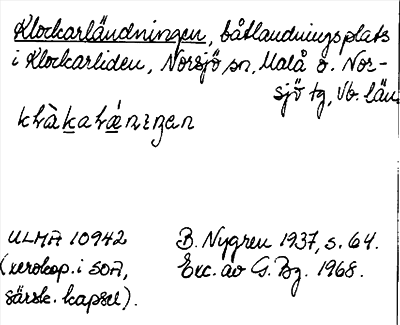 Klockarländningen, båtlandningsplats
i Klockarliden, Norsjö sn, Malå o. Nor-
sjö tg, Vb. län.
ULMA 10942
(xerokop. i SOA,
särsk. kapsel).
B. Nygren 1937, s. 64.
Exc. av G. Bg. 1968.